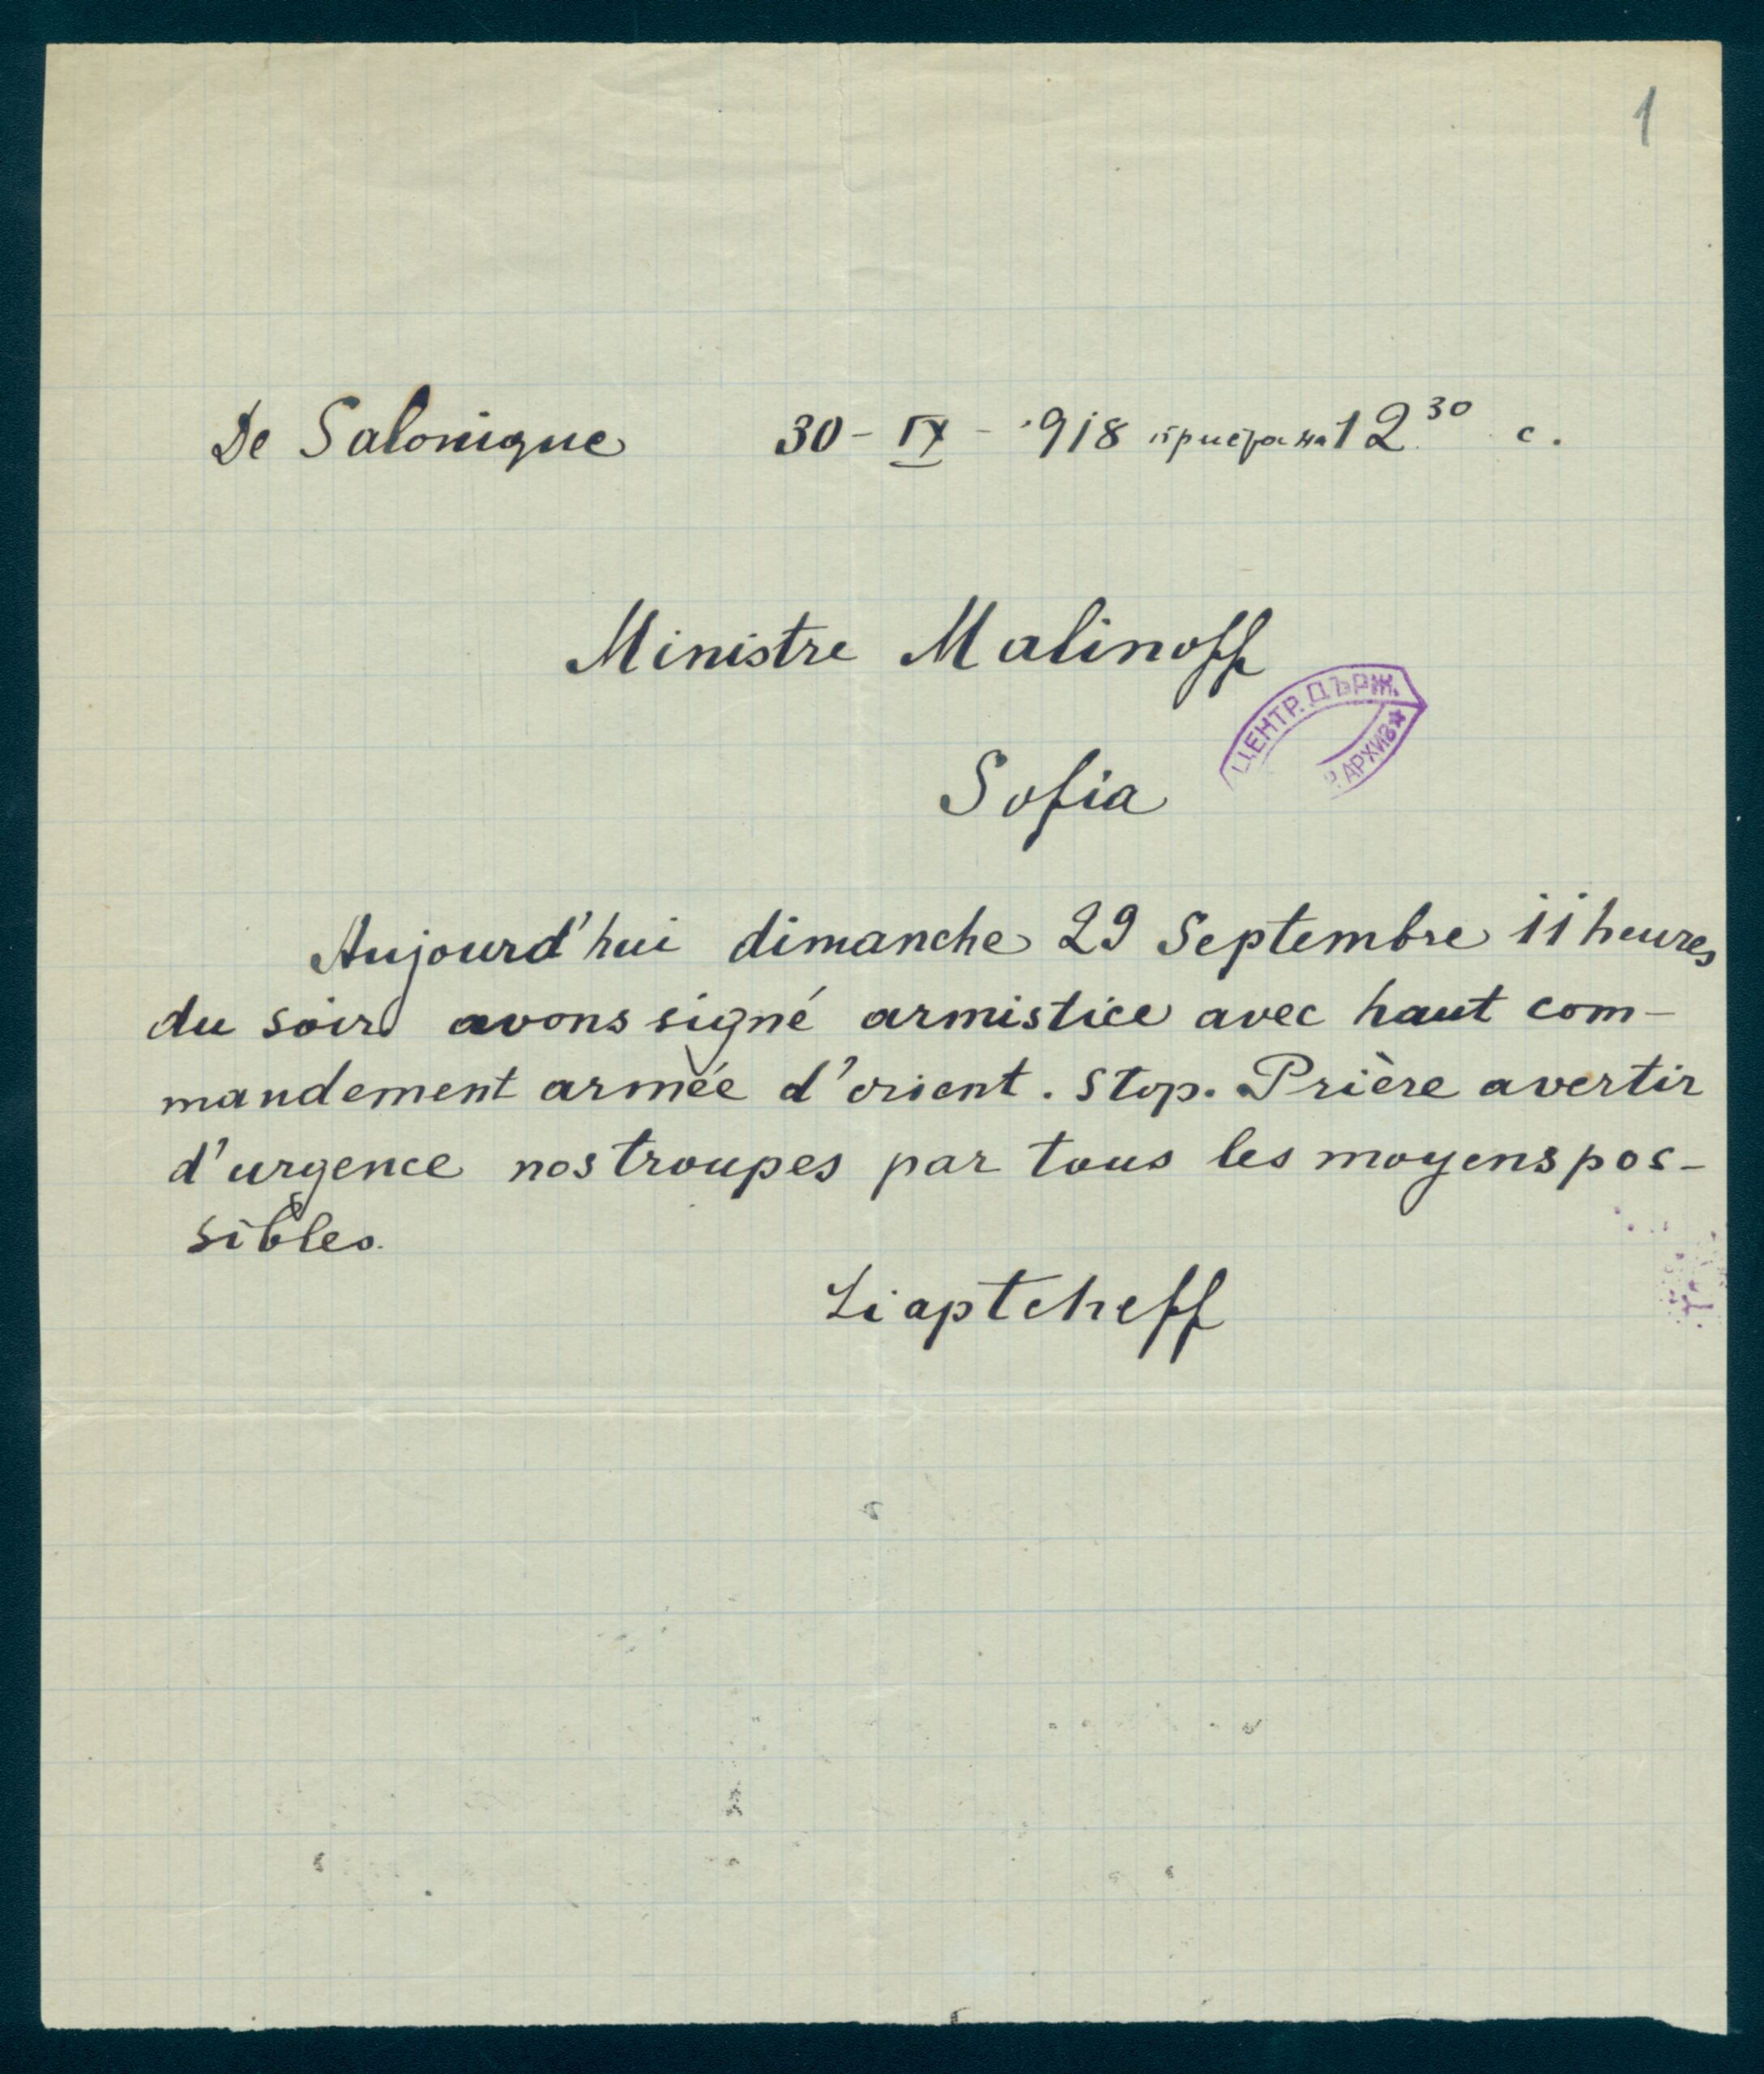 1
De Salonique 30 - IX - 918 приета на 12 30 с.
Ministre Malinoff
ЦЕНТР. ДЪРЖ.
АРХИВ
Sofia
Aujourd'hui dimanche 29 Septembre 11 heures
du soir avons signé armistice avec haut com-
mandement armée d'orient. Stop. Prière avertir
d'urgence nos troupes par tous les moyens pos-
sibles.
Liaptcheff